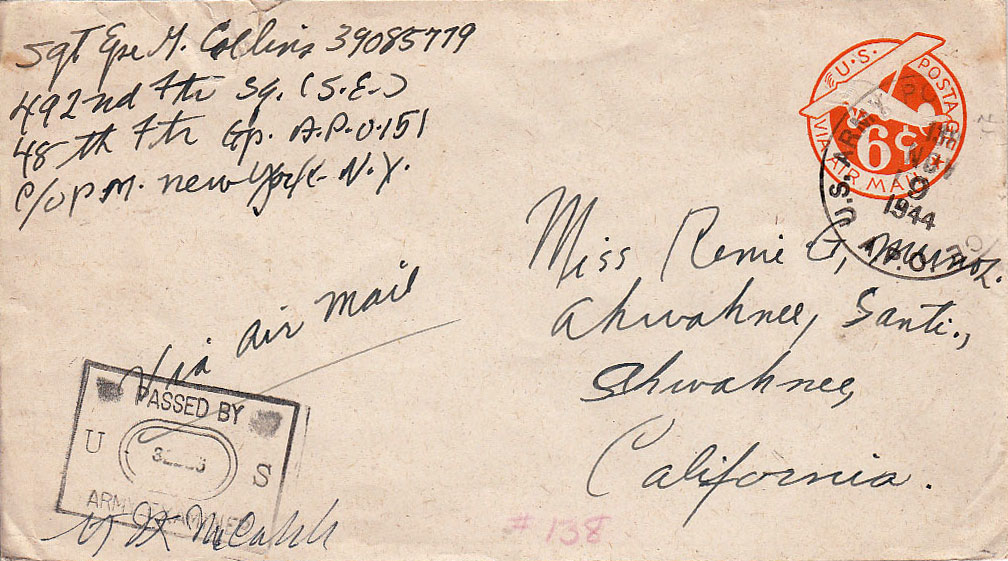 Sgt M. Collins 39085779
492nd Ftr Sq. (S.E.)
48th Ftr Gp. A.P.O. 151
c/o P.M. New York - N.Y.
U.S. POSTAGE
6¢
VIA AIR MAIL
U.S. ARMY
NOV
9
1944
A.P.O.
Miss Remie G. Munoz.
Ahwahnee, Sant.,
Ahwahnee,
California.
Via air mail
PASSED BY
U S
ARMY EXAMINER
# 138